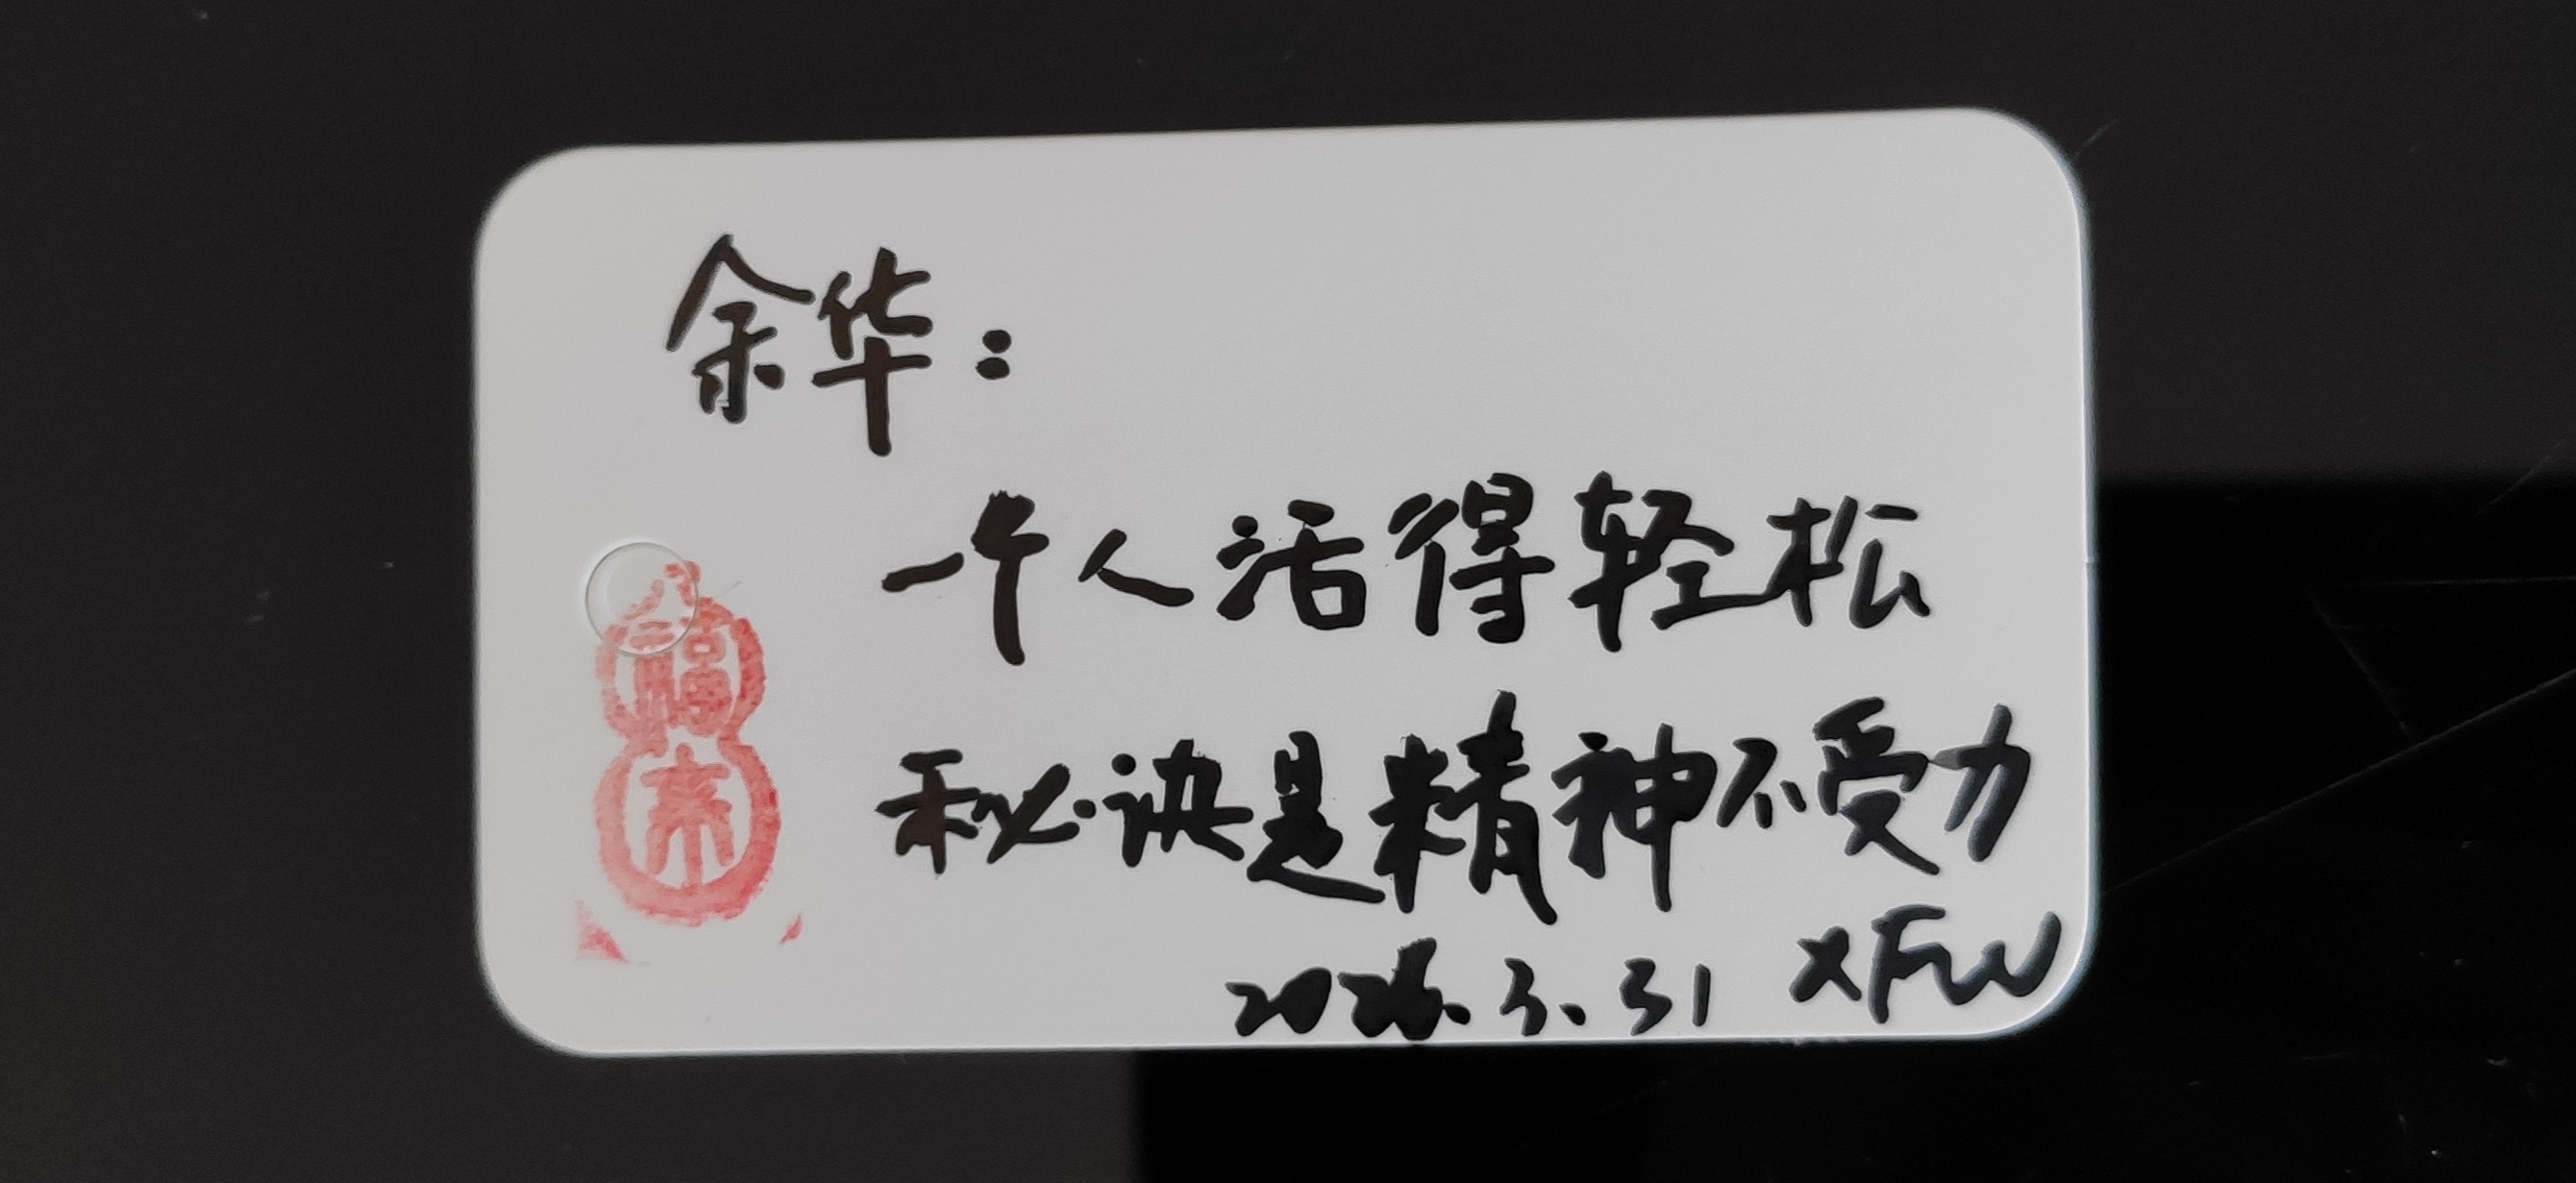 余华：
一个人活得轻松
秘诀是精神不受力
2026.3.31 XFW
福
来